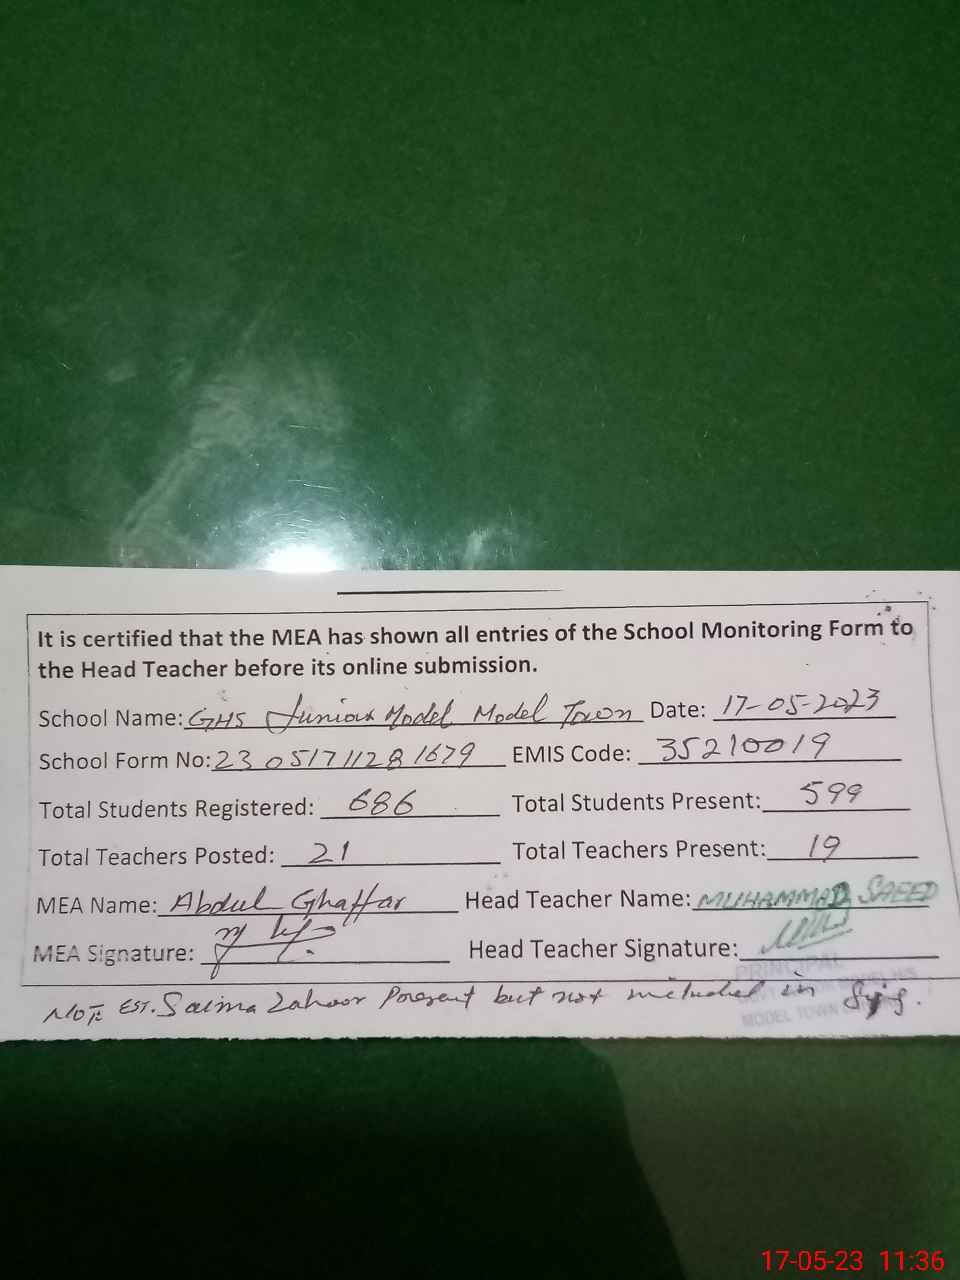 It is certified that the MEA has shown all entries of the School Monitoring Form to
the Head Teacher before its online submission.
School Name: GHS Junior Model Model Town Date: 17-05-2023
School Form No: 23051711281679 EMIS Code: 35210019
Total Students Registered: 686 Total Students Present: 599
Total Teachers Posted: 21 Total Teachers Present: 19
MEA Name: Abdul Ghaffar Head Teacher Name: MUHAMMAD SAEED
MEA Signature: Head Teacher Signature:
PRINCIPAL
NOTE EST. Saima Zahoor Present but not included in
MODEL TOWN
17-05-23 11:36